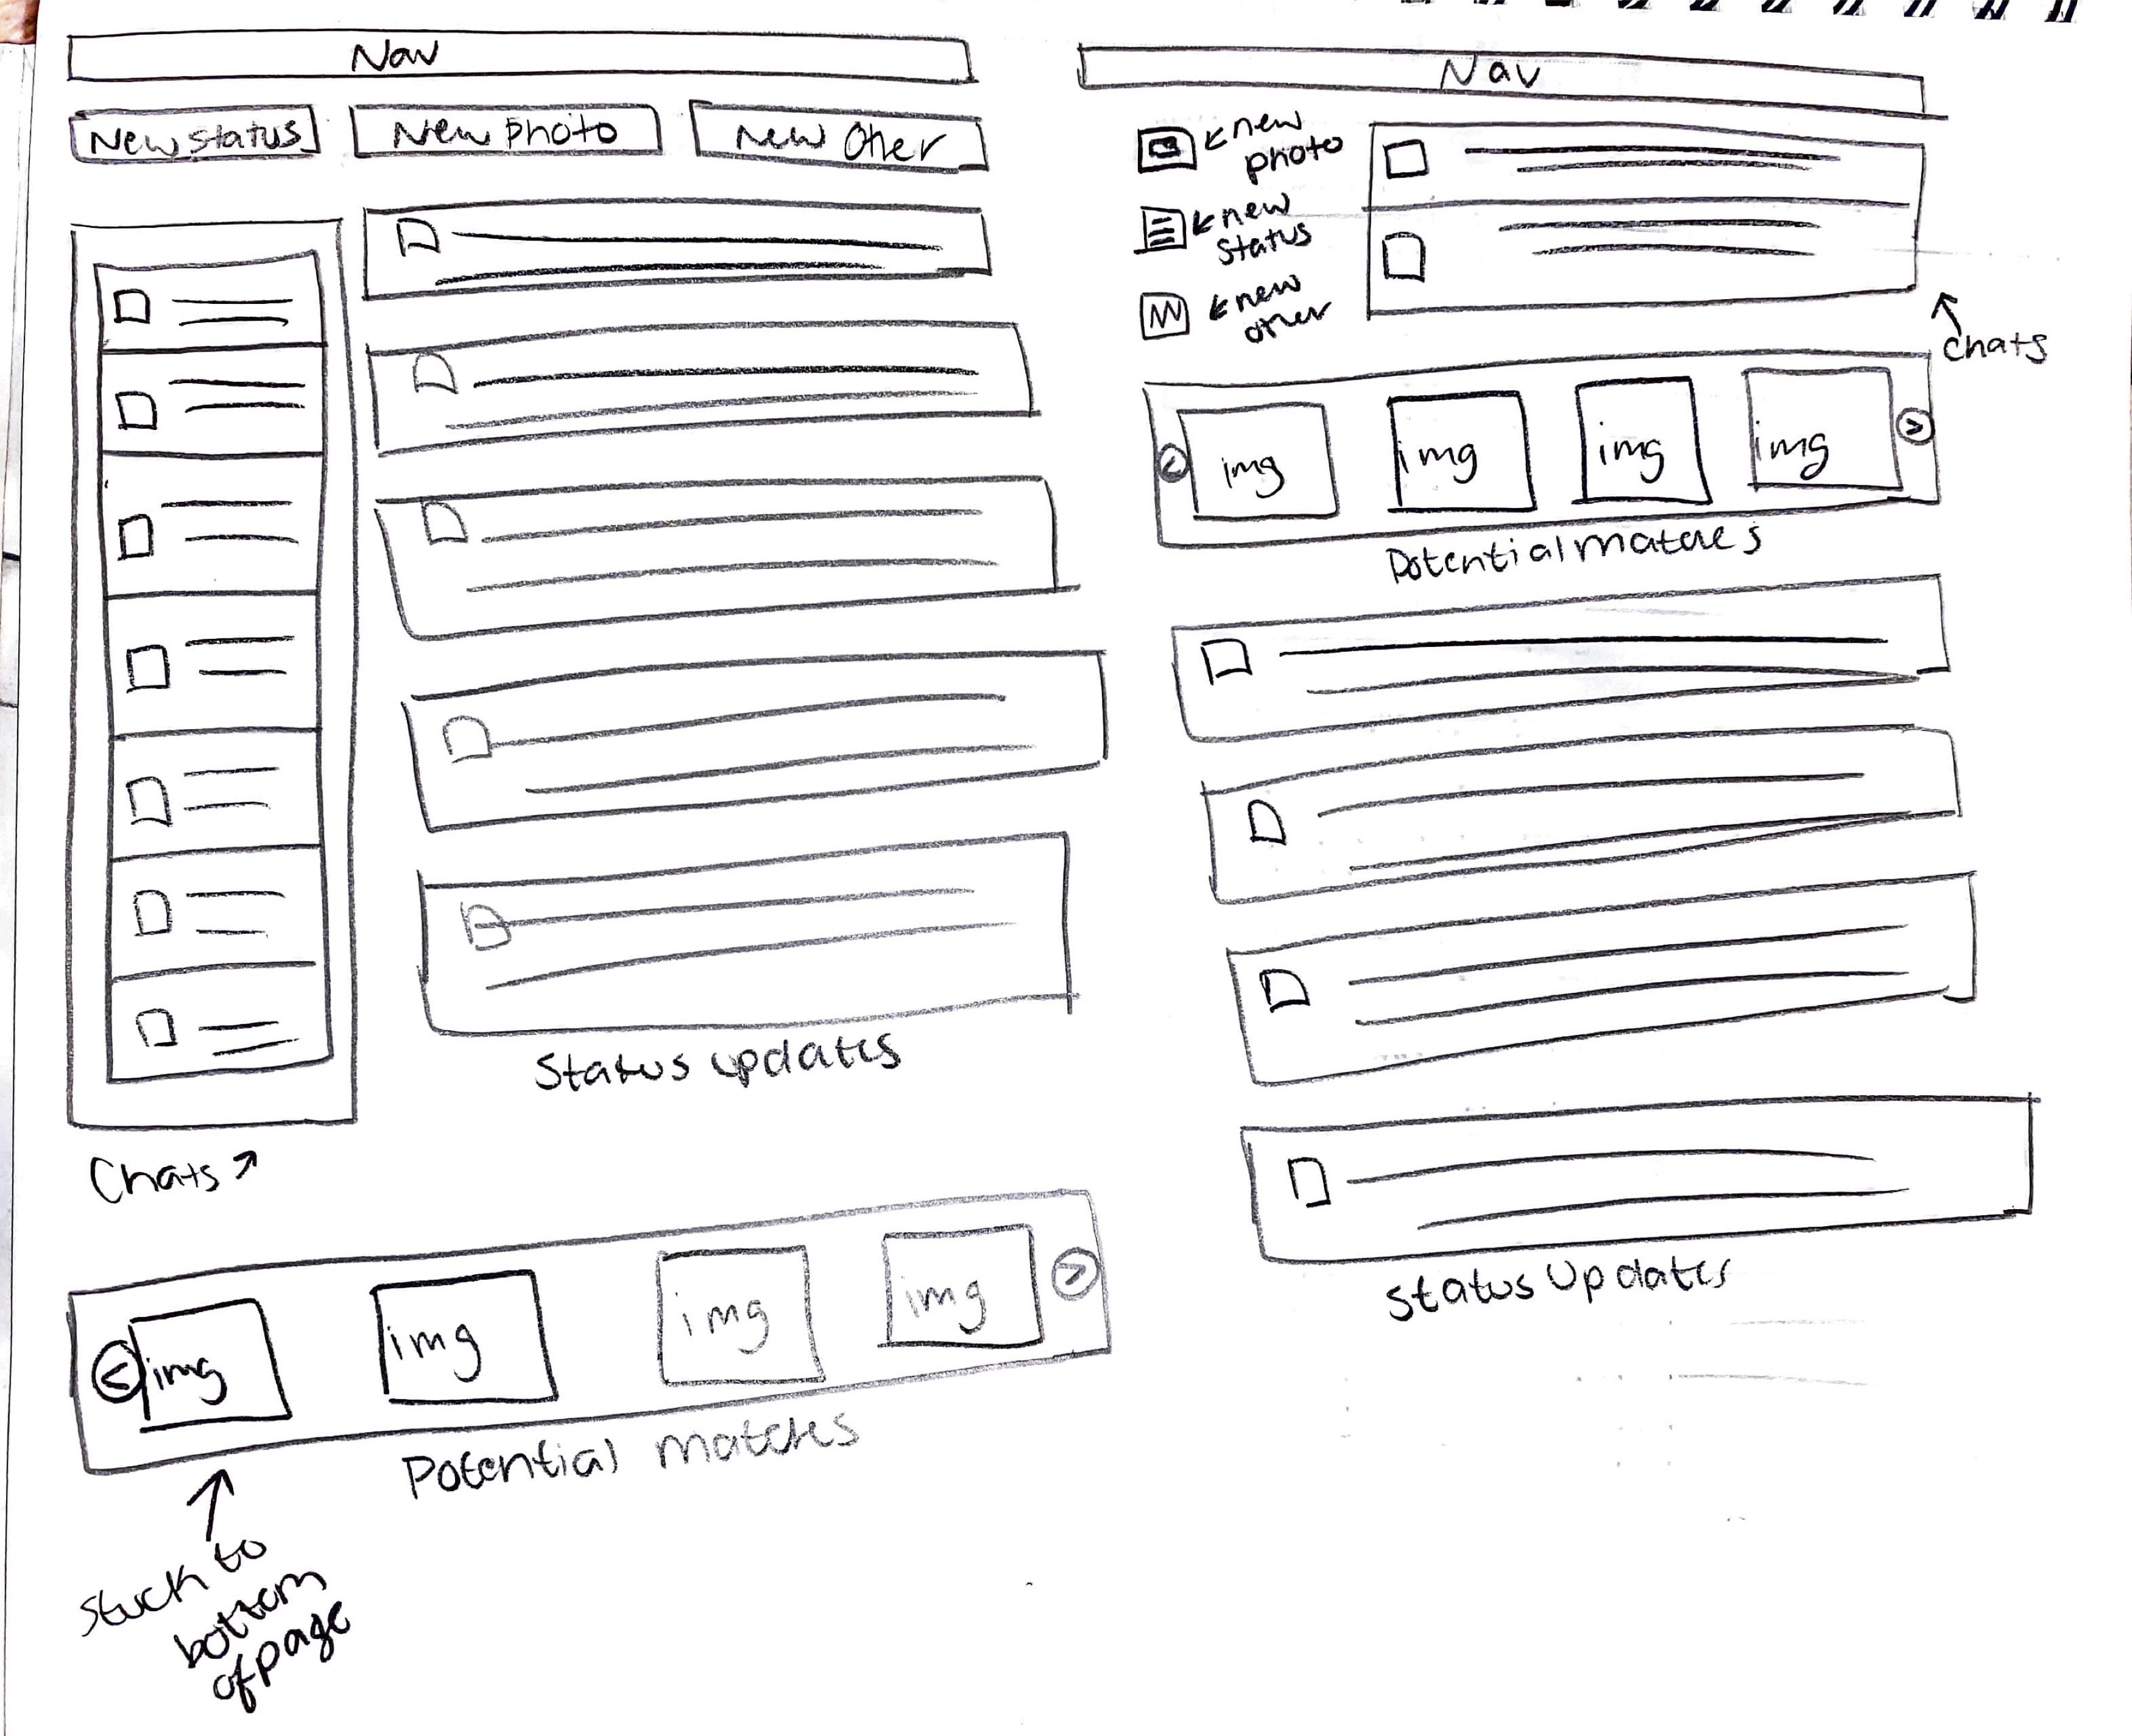 Nav
New status
New photo
New Other
Status updates
Chats
img
img
img
img
Potential matches
stuck to
bottom
of page
Nav
new
photo
new
status
new
other
chats
img
img
img
img
Potential matches
Status Updates